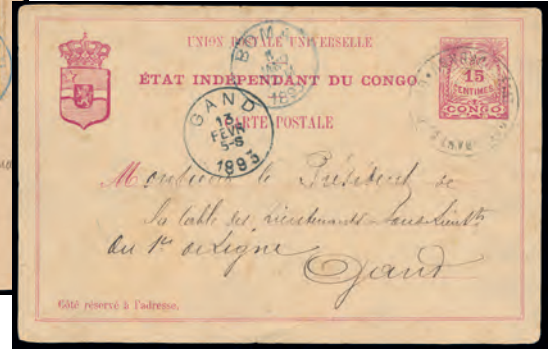 UNION POSTALE UNIVERSELLE
ÉTAT INDÉPENDANT DU CONGO
CARTE POSTALE
15
CENTIMES
CONGO
BOMA
1893
GAND
13
FEVR
5-S
1893
Monsieur le Président de
la table des Lieutenants - Sous-Lieutts
du 1er de Ligne
Gand
Côté réservé à l'adresse.